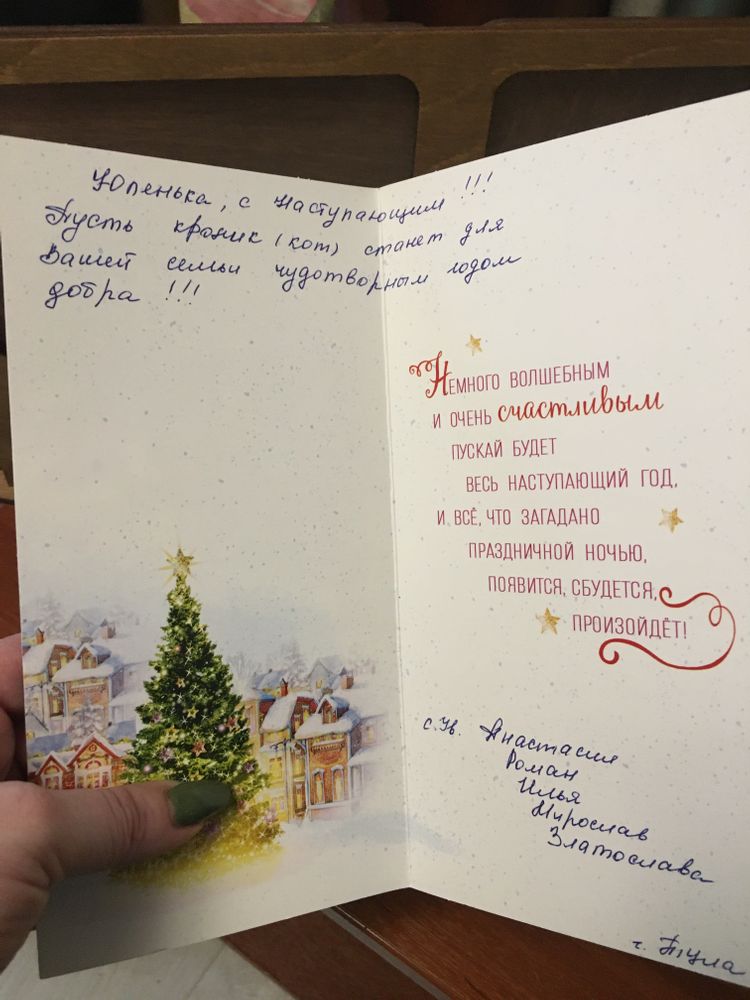 Юленька, с Наступающим !!!
Пусть кролик (кот) станет для
Вашей семьи чудотворным годом
добра !!!
Немного волшебным
и очень счастливым
пускай будет
весь наступающий год,
и всё, что загадано
праздничной ночью,
появится, сбудется,
произойдёт!
с Ув. Анастасия
Роман
Илья
Мирослав
Златослава
г. Тула